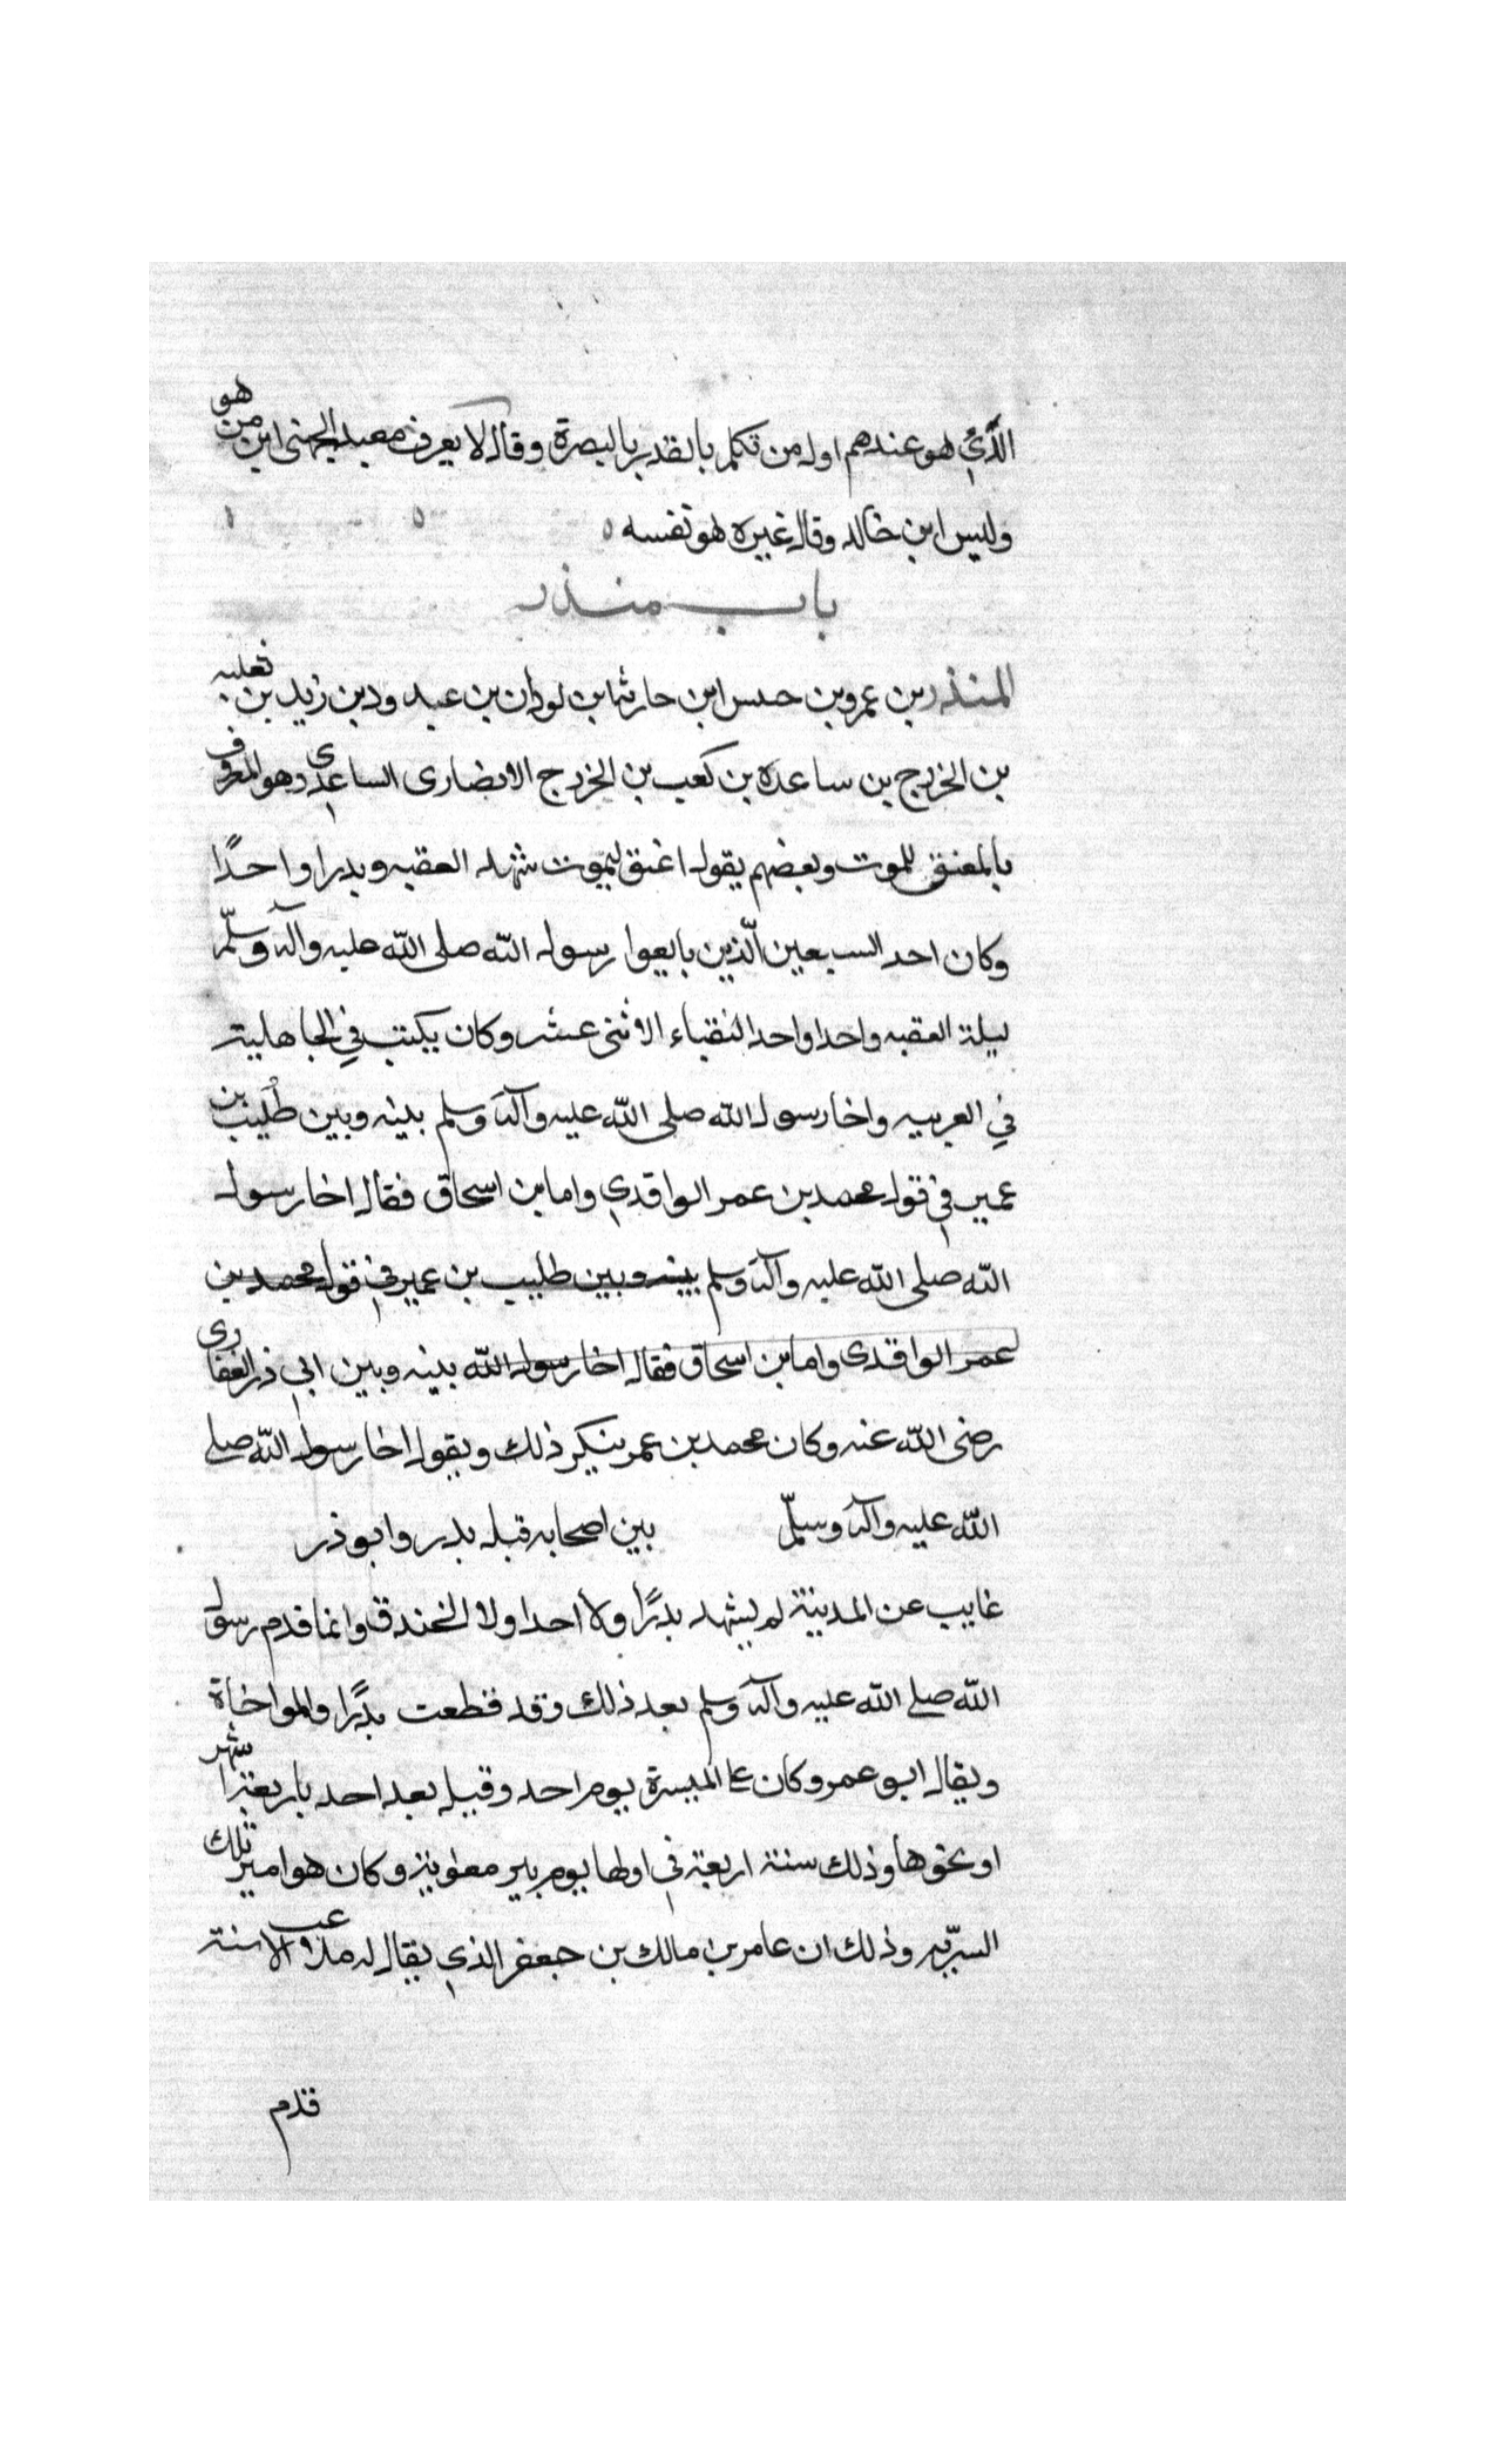 الذي هو عندهم اول من تكلم بالقدر بالبصرة وقال لا يعرف معبد الجهني ابن من هو
وليس ابن خالد وقال غيره هو نفسه
باب منذر
المنذر بن عمرو بن حىس ابن حارثة ابن لوذان بن عبد ود بن زيد بن ثعلبه
بن الخزرج بن ساعده بن كعب بن الخزرج الانصارى الساعدى وهو المعروف
بالمعنق للموت وبعضهم يقول اعنق ليموت شهد العقبه وبدرا واحدًا
وكان احد السبعين الّذين بايعوا رسول الله صلى الله عليه وآله وسلّم
ليلة العقبه واحدا واحد النقباء الاثنى عشر وكان يكتب في الجاهلية
في العربيه واخا رسول الله صلى الله عليه وآله وسلم بينه وبين طُليب بن
عمير في قول محمد بن عمر الواقدي واما بن اسحاق فقال اخا رسول
الله صلى الله عليه وآله وسلم بينه وبين طليب بن عمير في قول محمد بن
عمر الواقدى واما بن اسحاق فقال اخا رسول الله بينه وبين ابي ذر الغفارى
رضى الله عنه وكان محمد بن عمر ينكر ذلك ويقول اخا رسول الله صلى
الله عليه وآله وسلّم بين اصحابه قبل بدر وابو ذر
غايب عن المدينة لم يشهد بدرًا ولا احدا ولا الخندق وانما قدم رسول
الله صلى الله عليه وآله وسلم بعد ذلك وقد قطعت بدرًا والمواخاة
ويقال ابو عمر وكان على الميسرة يوم احد وقىىل بعد احد باربعة اشهر
او نحوها وذلك سنة اربعة في اولها يوم بير معوىة وكان هو امير تلك
السرّيه وذلك ان عامر بن مالك بن جعفر الذي يقال له ملاعب الاسنة
قدم